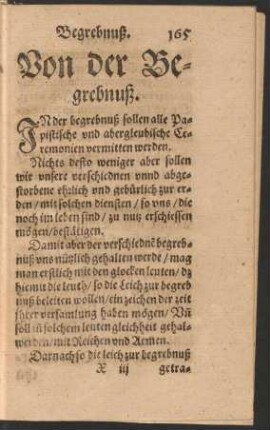 Begrebnuß. 165
Von der Be-
grebnuß.
IN der begrebnuß sollen alle Pa-
pistische vnd abergleubische Ce-
remonien vermitten werden.
Nichts desto weniger aber sollen
wir vnsere verschiednen vnnd abge-
storbene ehrlich vnd gebürlich zur er-
den / mit solchen diensten / so vns / die
noch im leben sind / zu nutz erschiessen
mögen / bestätigen.
Damit aber der verschiednē begreb-
nuß vns nützlich gehalten werde / mag
man erstlich mit den glocken leuten / dz
hiemit die leuth / so die Leich zur begreb
nuß beleiten wollen / ein zeichen der zeit
jhrer versamlung haben mögen / Vñ
soll in solchem leuten gleichheit gehal-
werden / mit Reichen vnd Armen.
Darnach so die leich zur begrebnuß
X iij getra-